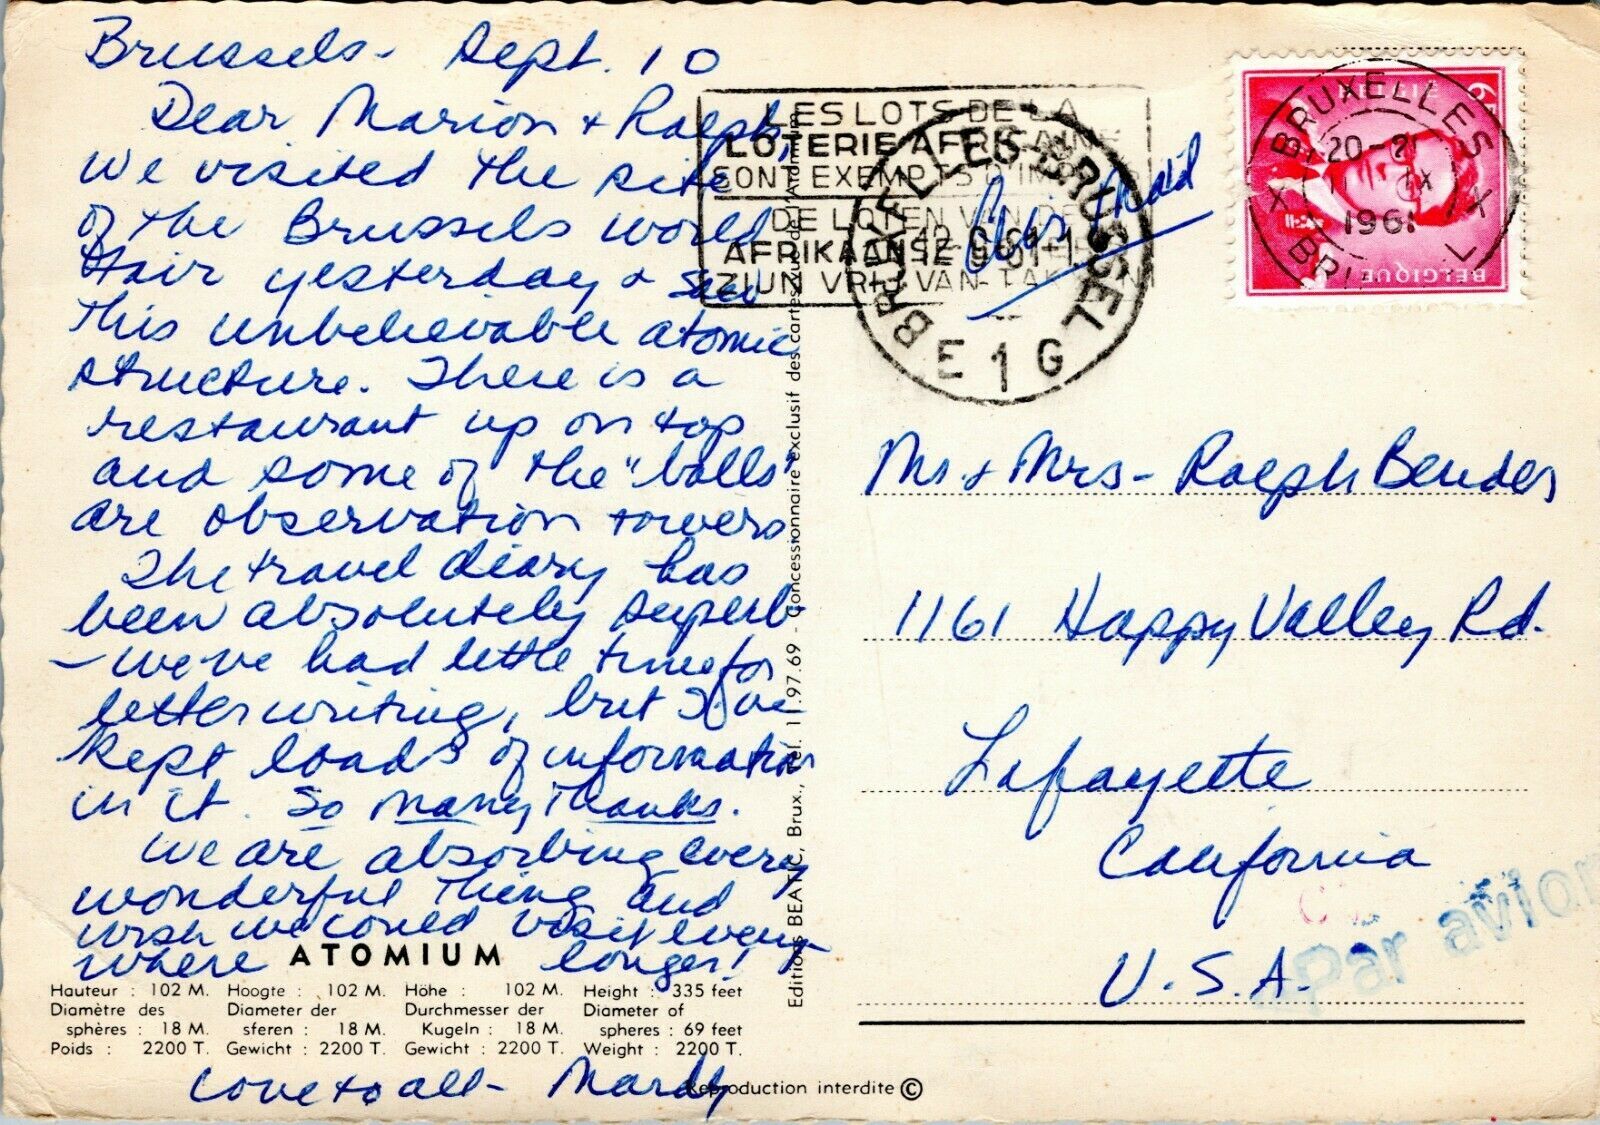 Brussels - Sept. 10
Dear Marion & Ralph,
We visited the site
of the Brussels world
Fair yesterday & saw
this unbelievable atomic
structure. There is a
restaurant up on top
and some of the "balls"
are observation towers
The travel diary has
been absolutely superb
- we've had little time for
letter writing, but I've
kept loads of information
in it. So many Thanks.
We are absorbing every
wonderful thing and
wish we could visit every-
where longer!
Love to all - Mardy
ATOMIUM
Hauteur : 102 M. Hoogte : 102 M. Höhe : 102 M. Height : 335 feet
Diamètre des Diameter der Durchmesser der Diameter of
sphères : 18 M. sferen : 18 M. Kugeln : 18 M. spheres : 69 feet
Poids : 2200 T. Gewicht : 2200 T. Gewicht : 2200 T. Weight : 2200 T.
Reproduction interdite ©
Editions BEATIC, Brux., Tel. 11.97.69 - Concessionnaire exclusif des cartes vues de l'Atomium
LES LOTS DE LA
LOTERIE AFRICAINE
SONT EXEMPTS D'IMP
DE LOTEN VAN DE
AFRIKAANSE
ZIJN VRIJ VAN TAK
BRUXELLES-BRUSSEL
E 1 G
BRUXELLES X
1961
BELGIE
BELGIQUE
Mr & Mrs - Ralph Bender
1161 Happy Valley Rd.
Lafayette
California
U.S.A.
Par avion